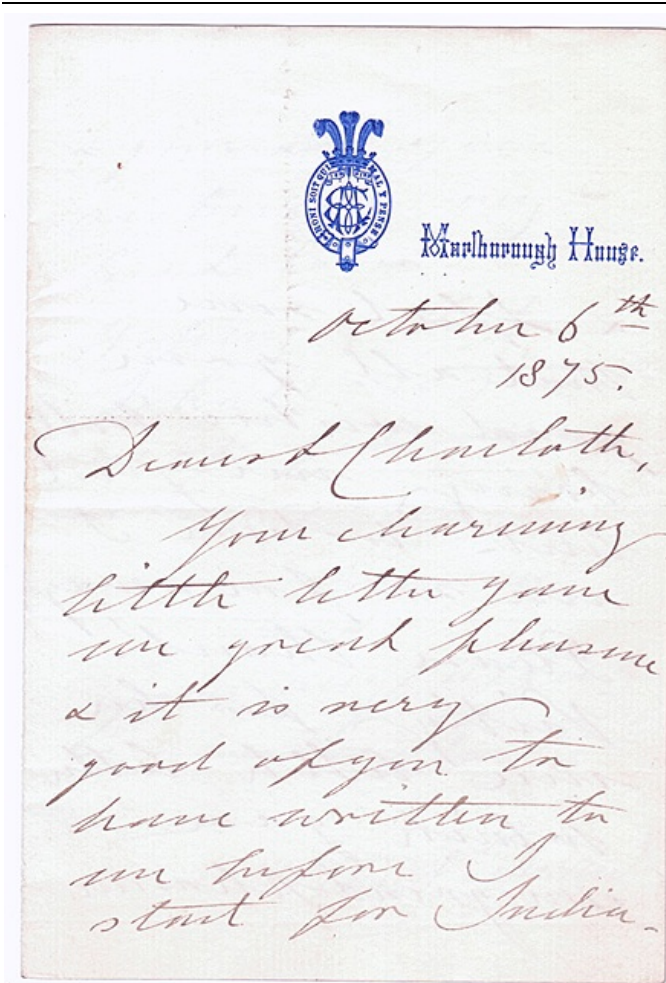 HONI SOIT QUI MAL Y PENSE
Marlborough House.
October 6th
1875.
Dearest Charlotte,
Your charming
little letter gave
me great pleasure
& it is very
good of you to
have written to
me before I
start for India.